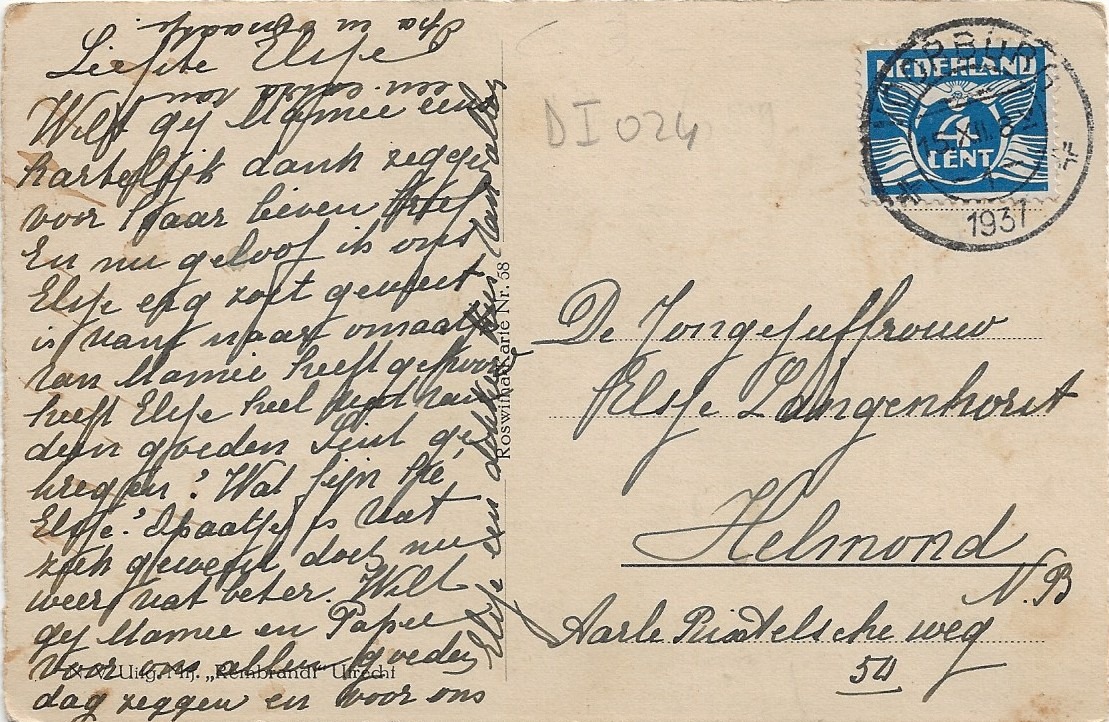 Liefste Elsje
Wilt gij Mamee eens
hartelijk dank zeggen
voor haar lieven brief
En nu geloof ik ons
Elsje erg zoet geweest
is want naar omaatje
van Mamee heeft gehoord
heeft Elsje heel veel van
den goeden Sint ge
kregen! Wat fijn hé
Elsje! Opaatje is wat
ziek geweest doch nu
weer wat beter. Wilt
gij Mamee en Papee
voor ons allen goeden
dag zeggen en voor ons
Elsje een dikken kus van alle
een extra van
Opa en omaatje.
N.V. Uitg. Mij. „Rembrandt" Utrecht
Roswitha-Karte Nr. 58
DI 024
NEDERLAND
4
CENT
15.XII.8
1937
De Jongejuffrouw
Elsje Langenhorst
Helmond
N.B
Aarle Rixtelsche weg
54